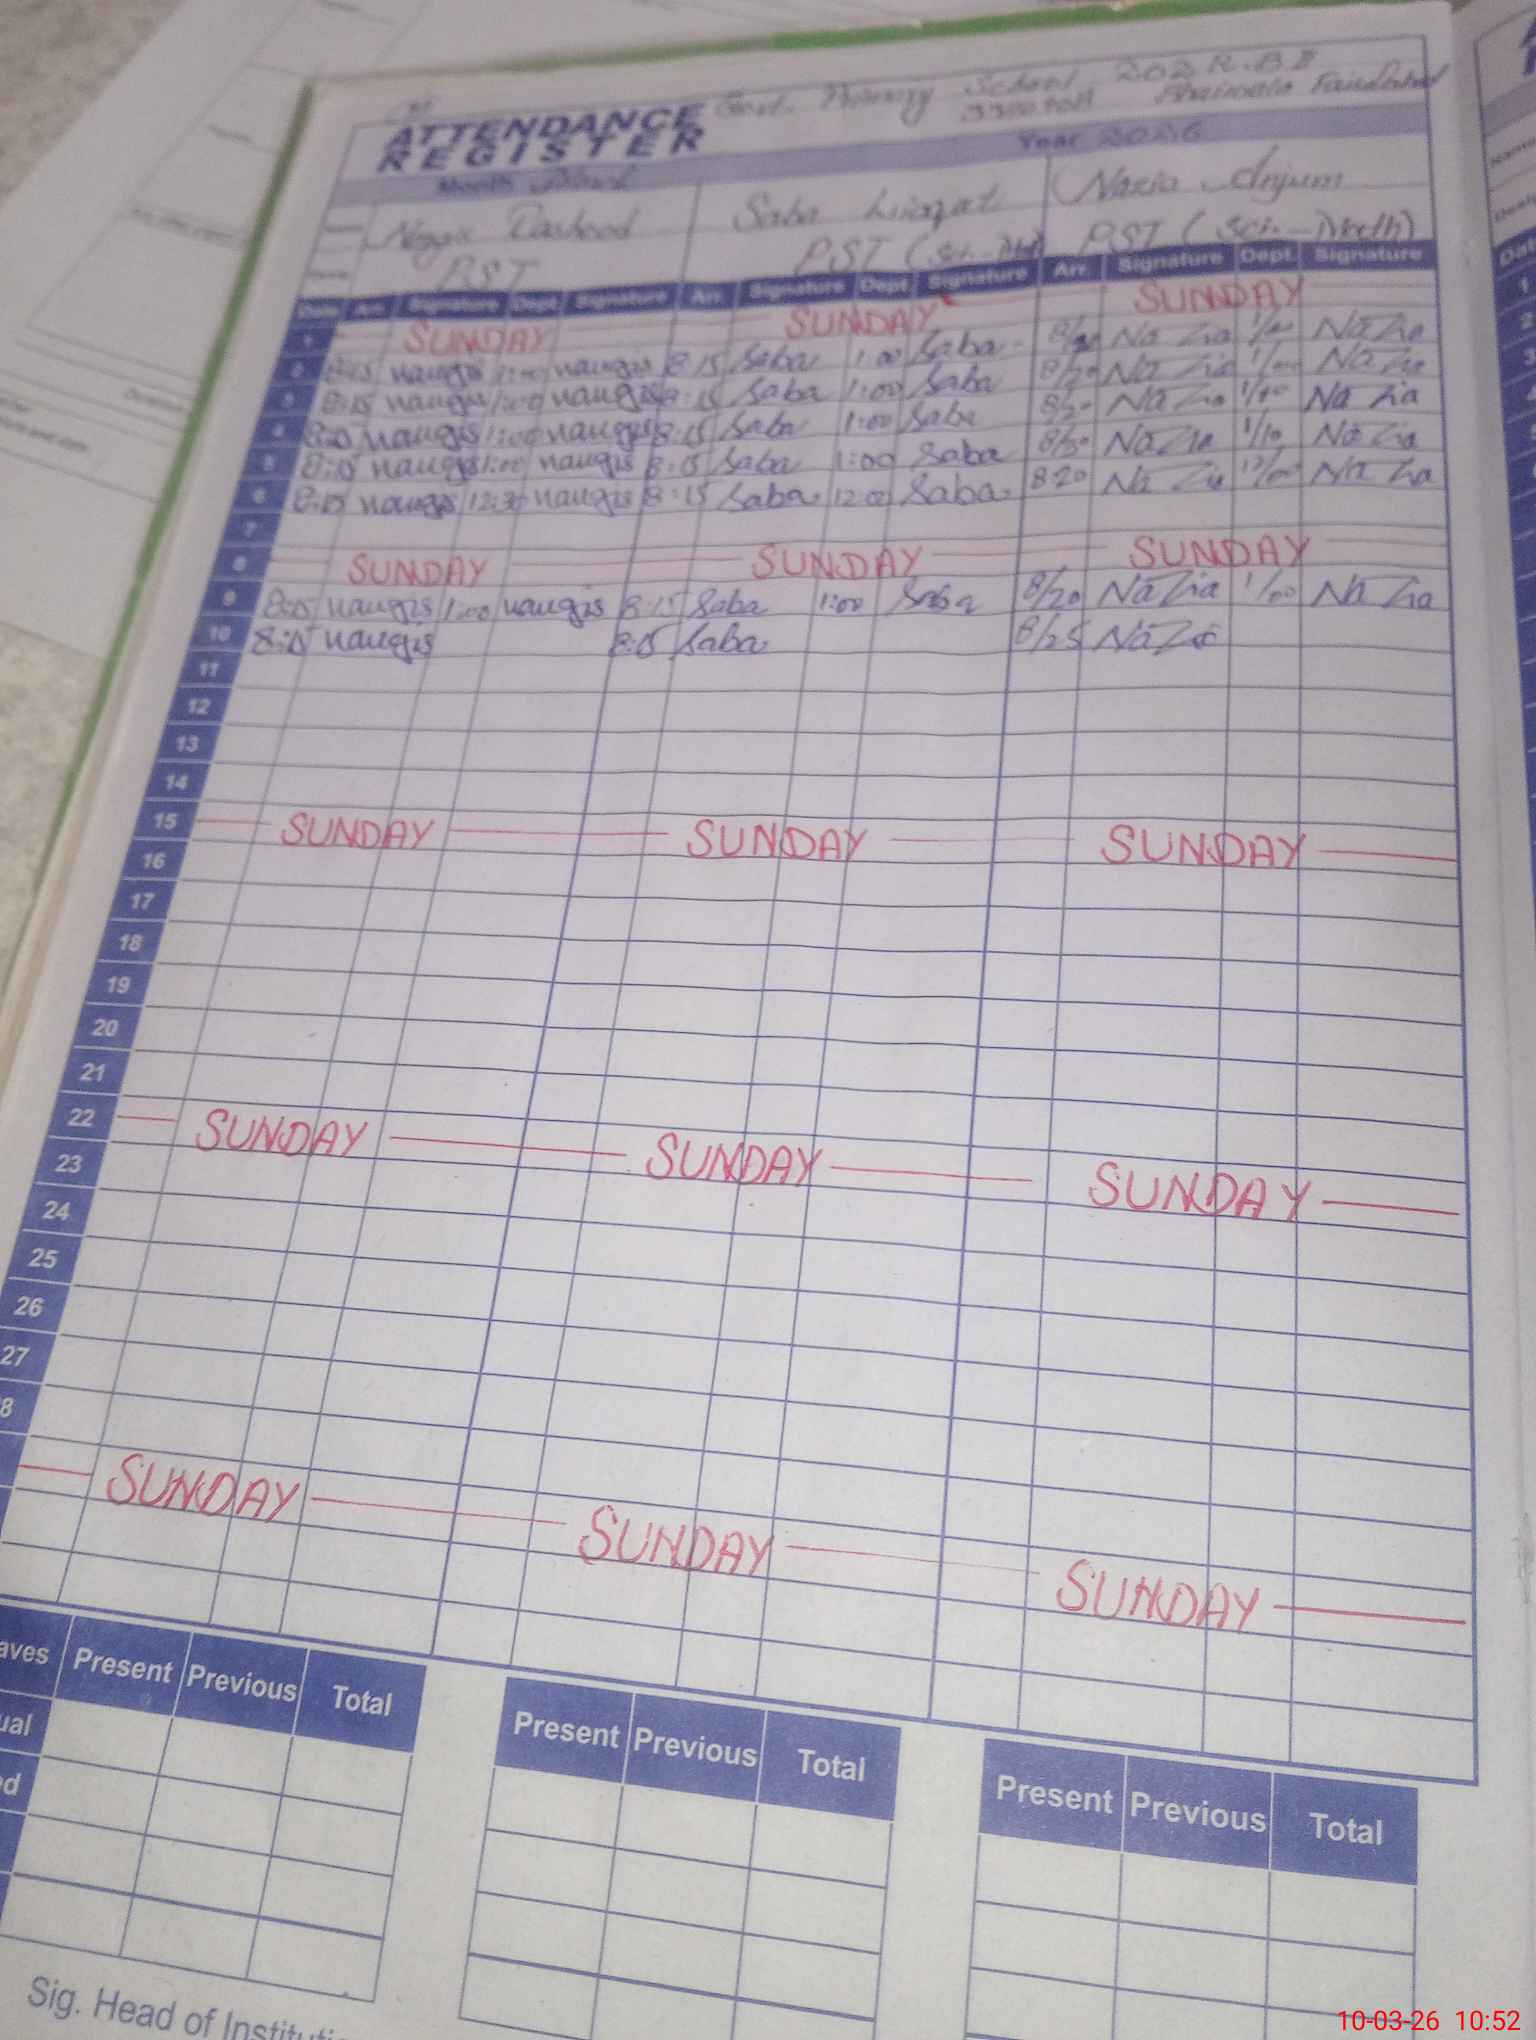 ATTENDANCE REGISTER Govt. Primary School 202 R.B II
Bhaiwala Faisalabad
Month Year 2026
Nargis Rasheed Saba Liaqat Nazia Anjum
PST PST (Sci-Math) PST (Sci-Math)
Date Arr. Signature Dept. Signature Arr. Signature Dept. Signature Arr. Signature Dept. Signature
1 SUNDAY SUNDAY SUNDAY
2 8:15 nargis 1:00 nargis 8:15 Saba 1:00 Saba Nazia Nazia
3 8:15 nargis 1:00 nargis 8:15 Saba 1:00 Saba 8/20 Nazia 1/00 Nazia
4 nargis 1:00 nargis 8:15 Saba 1:00 Saba Nazia Nazia
5 8:15 nargis 1:00 nargis 8:15 Saba 1:00 Saba Nazia 1/10 Nazia
6 8:15 nargis 12:30 nargis 8:15 Saba 12:00 Saba 8:20 Nazia 12/00 Nazia
7
8 SUNDAY SUNDAY SUNDAY
9 8:15 nargis 1:00 nargis 8:15 Saba 1:00 Saba 8/20 Nazia 1/00 Nazia
10 8:15 nargis 8:15 Saba 8/25 Nazia
11
12
13
14
15 SUNDAY SUNDAY SUNDAY
16
17
18
19
20
21
22 SUNDAY SUNDAY SUNDAY
23
24
25
26
27
8
SUNDAY SUNDAY SUNDAY
aves Present Previous Total Present Previous Total Present Previous Total
ual
ed
Sig. Head of Instituti
10-03-26 10:52